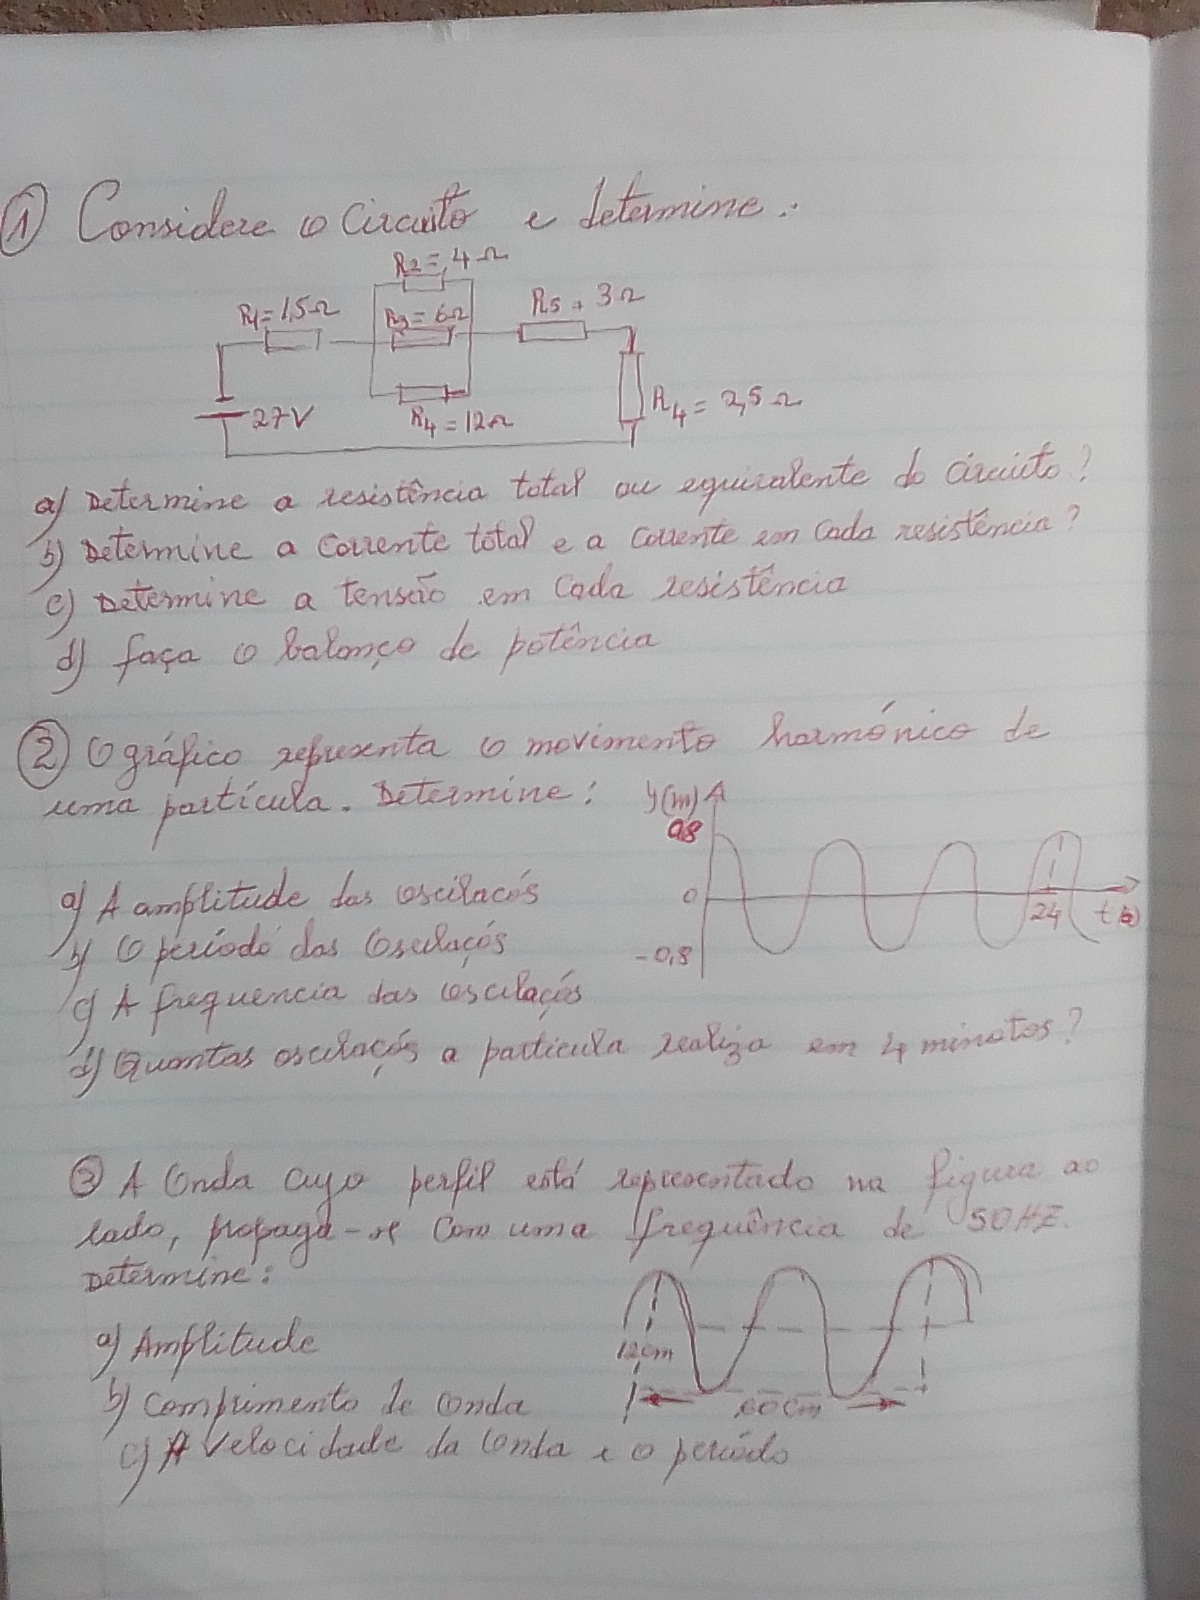 1 Considere o Circuito e determine:
R2=4Ω
R1=1,5Ω
R3=6Ω
R5=3Ω
27V
R4=12Ω
R4=2,5Ω
a) Determine a resistência total ou equivalente do circuito?
b) Determine a corrente total e a corrente em cada resistência?
c) Determine a tensão em cada resistência
d) faça o balanço de potência
2 O gráfico representa o movimento harmónico de
uma partícula. Determine:
y(m)
0,8
0
-0,8
24
a) A amplitude das oscilacós
b) O período das oscilaçós
c) A frequencia das oscilaçós
d) Quantas oscilaçós a particula realiza em 4 minutos?
3 A Onda cujo perfil está representado na figura ao
lado, propaga-se com uma frequência de 50HZ.
Determine:
a) Amplitude
12cm
b) Comprimento de onda
60cm
c) A velocidade da onda e o período